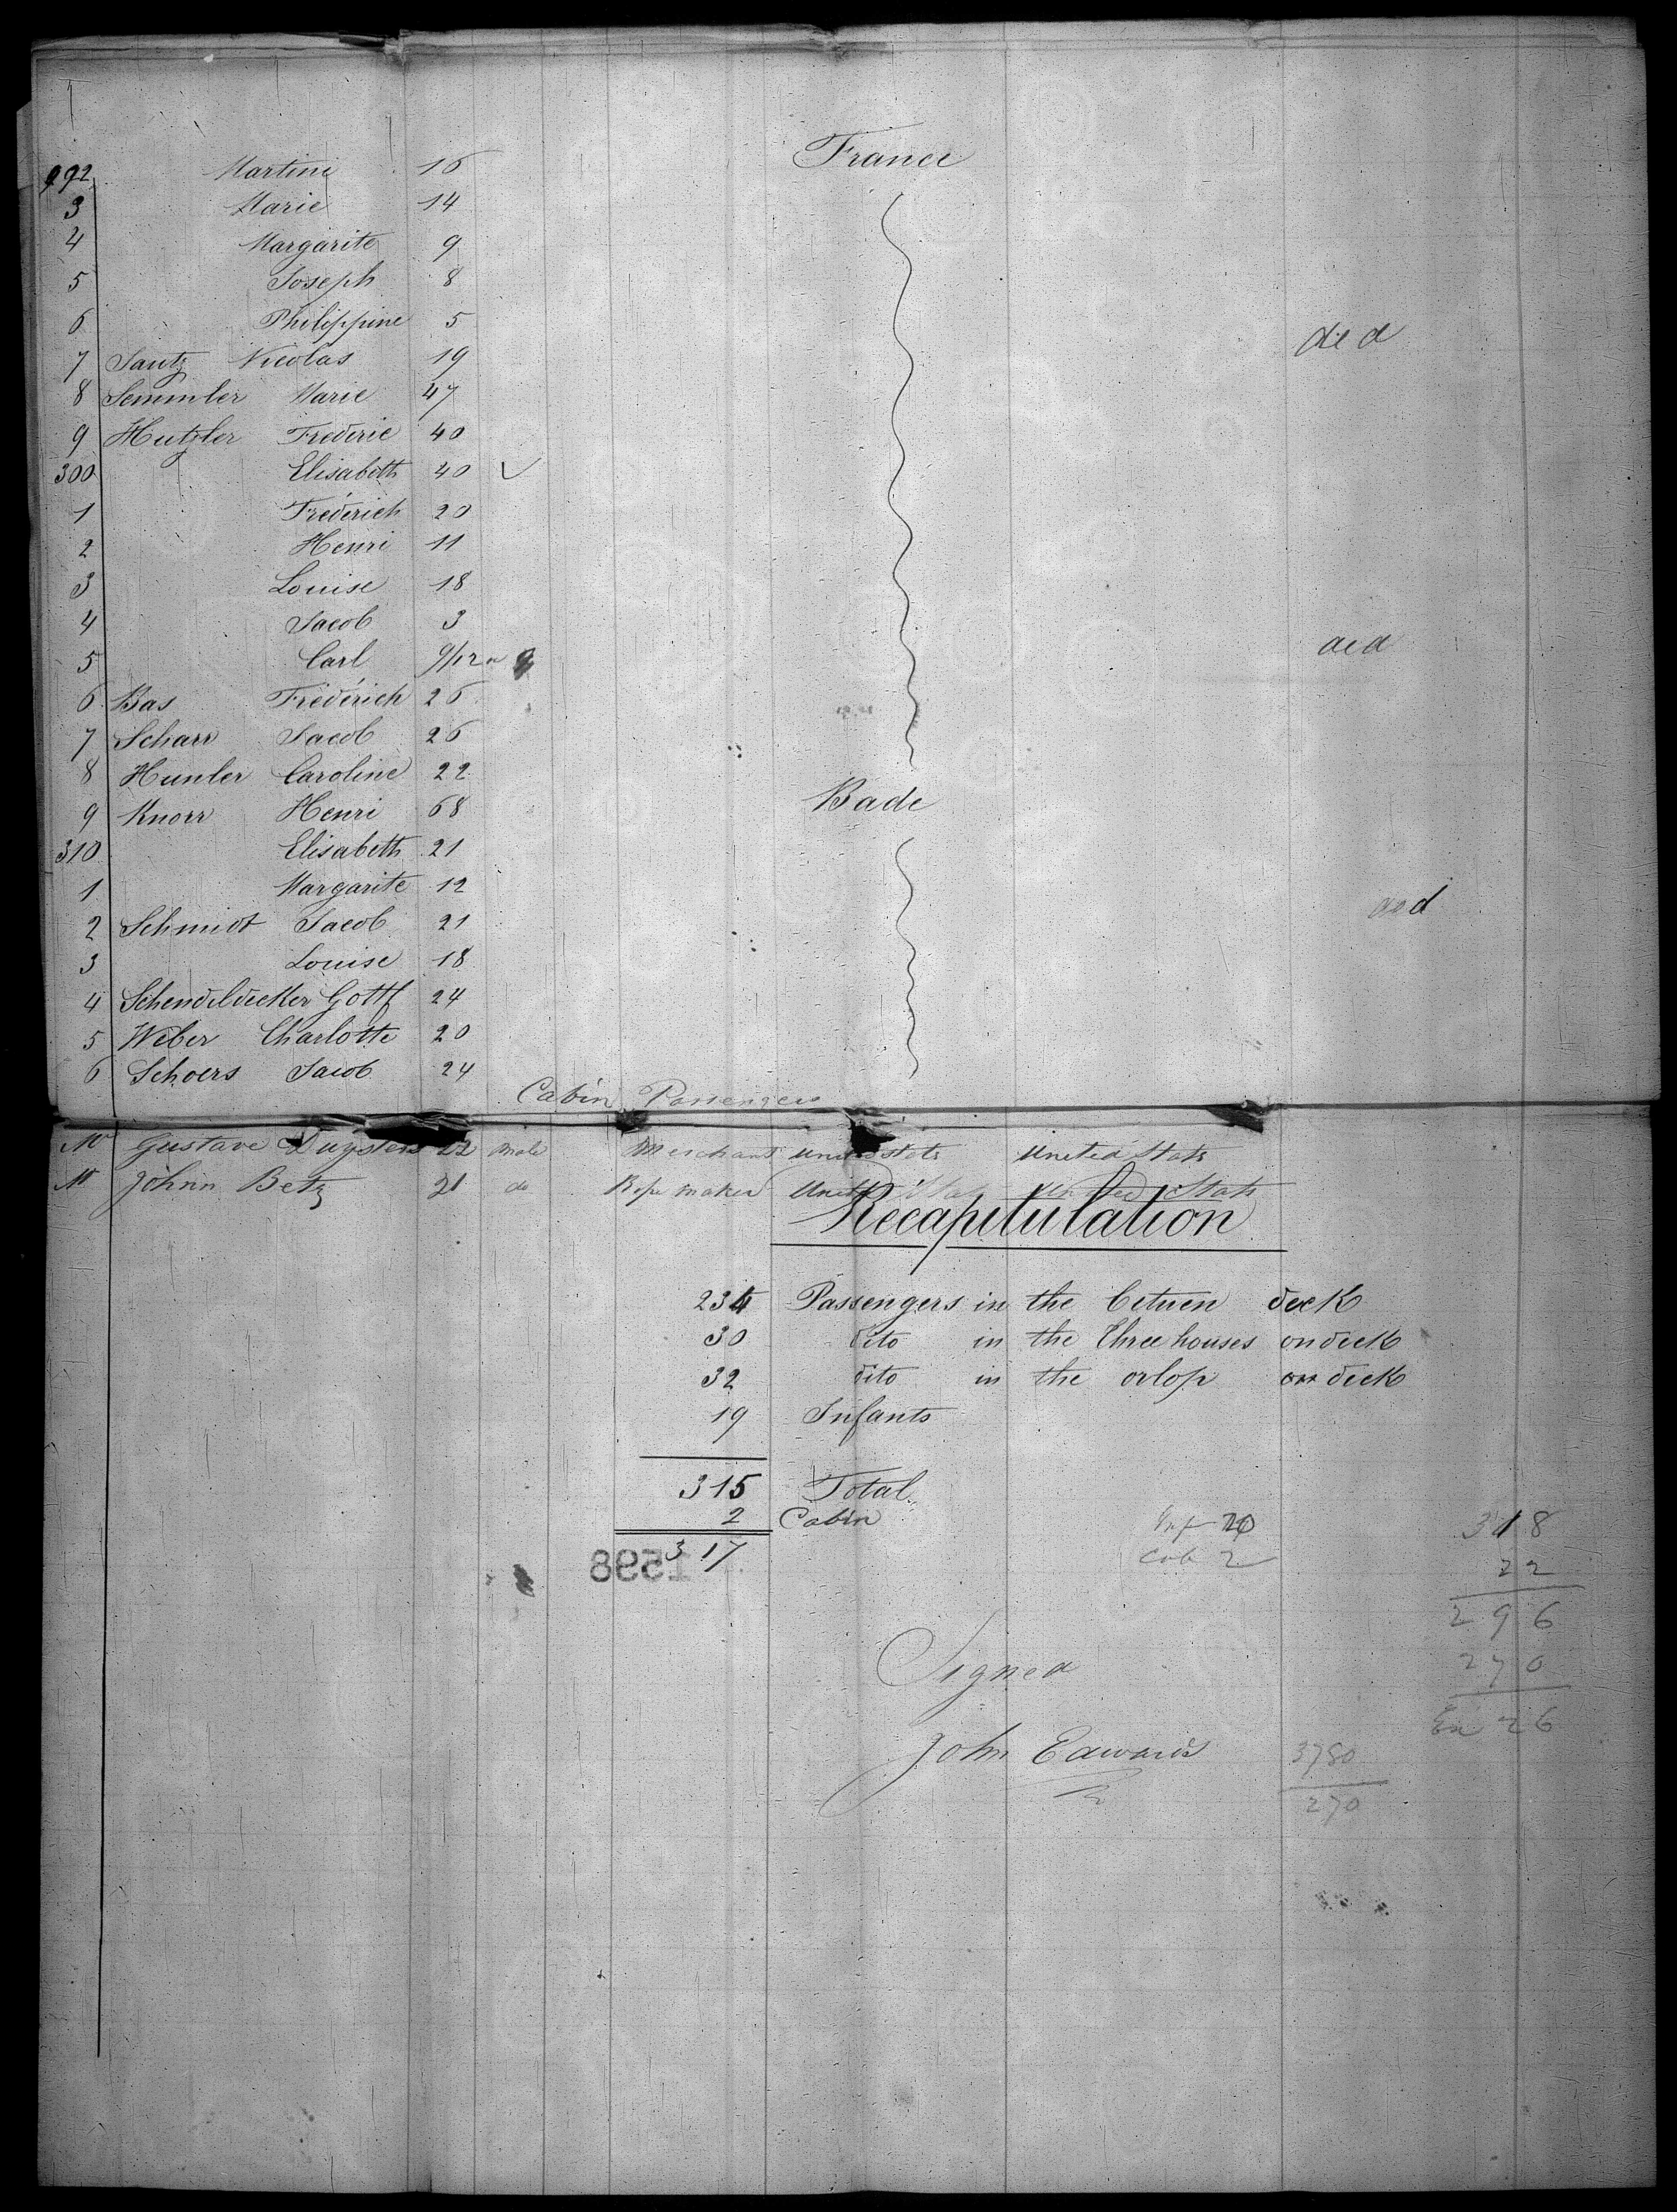 292 Martini 16 France
3 Marie 14
4 Margarite 9
5 Joseph 8
6 Philippine 5 died
7 Santz Nicolas 19
8 Semmler Marie 47
9 Hutzler Frederic 40
300 Elisabeth 40 ✓
1 Fréderich 20
2 Henri 11
3 Louise 18
4 Jacob 3
5 Carl 9/12 died
6 Bas Fréderich 26
7 Scharr Jacob 26
8 Hunler Caroline 22
9 Knorr Henri 68 Bade
310 Elisabeth 21
1 Margarite 12
2 Schmidt Jacob 21
3 Louise 18
4 Schendeldecker Gottf 24
5 Weber Charlotte 20
6 Schoers Jacob 24
Cabin Passengers
Mr Gustave 22 male Merchant United States United States
Mr Johnn Betz 21 do Rope maker United States United States
Recapitulation
234 Passengers in the betuen deck
30 dito in the three houses on deck
32 dito in the orlop deck
19 Infants
315 Total
2 Cabin
317
1598
Inf 20
Cab 2
318
22
296
270
26
Signed
John Edwards
3780
270